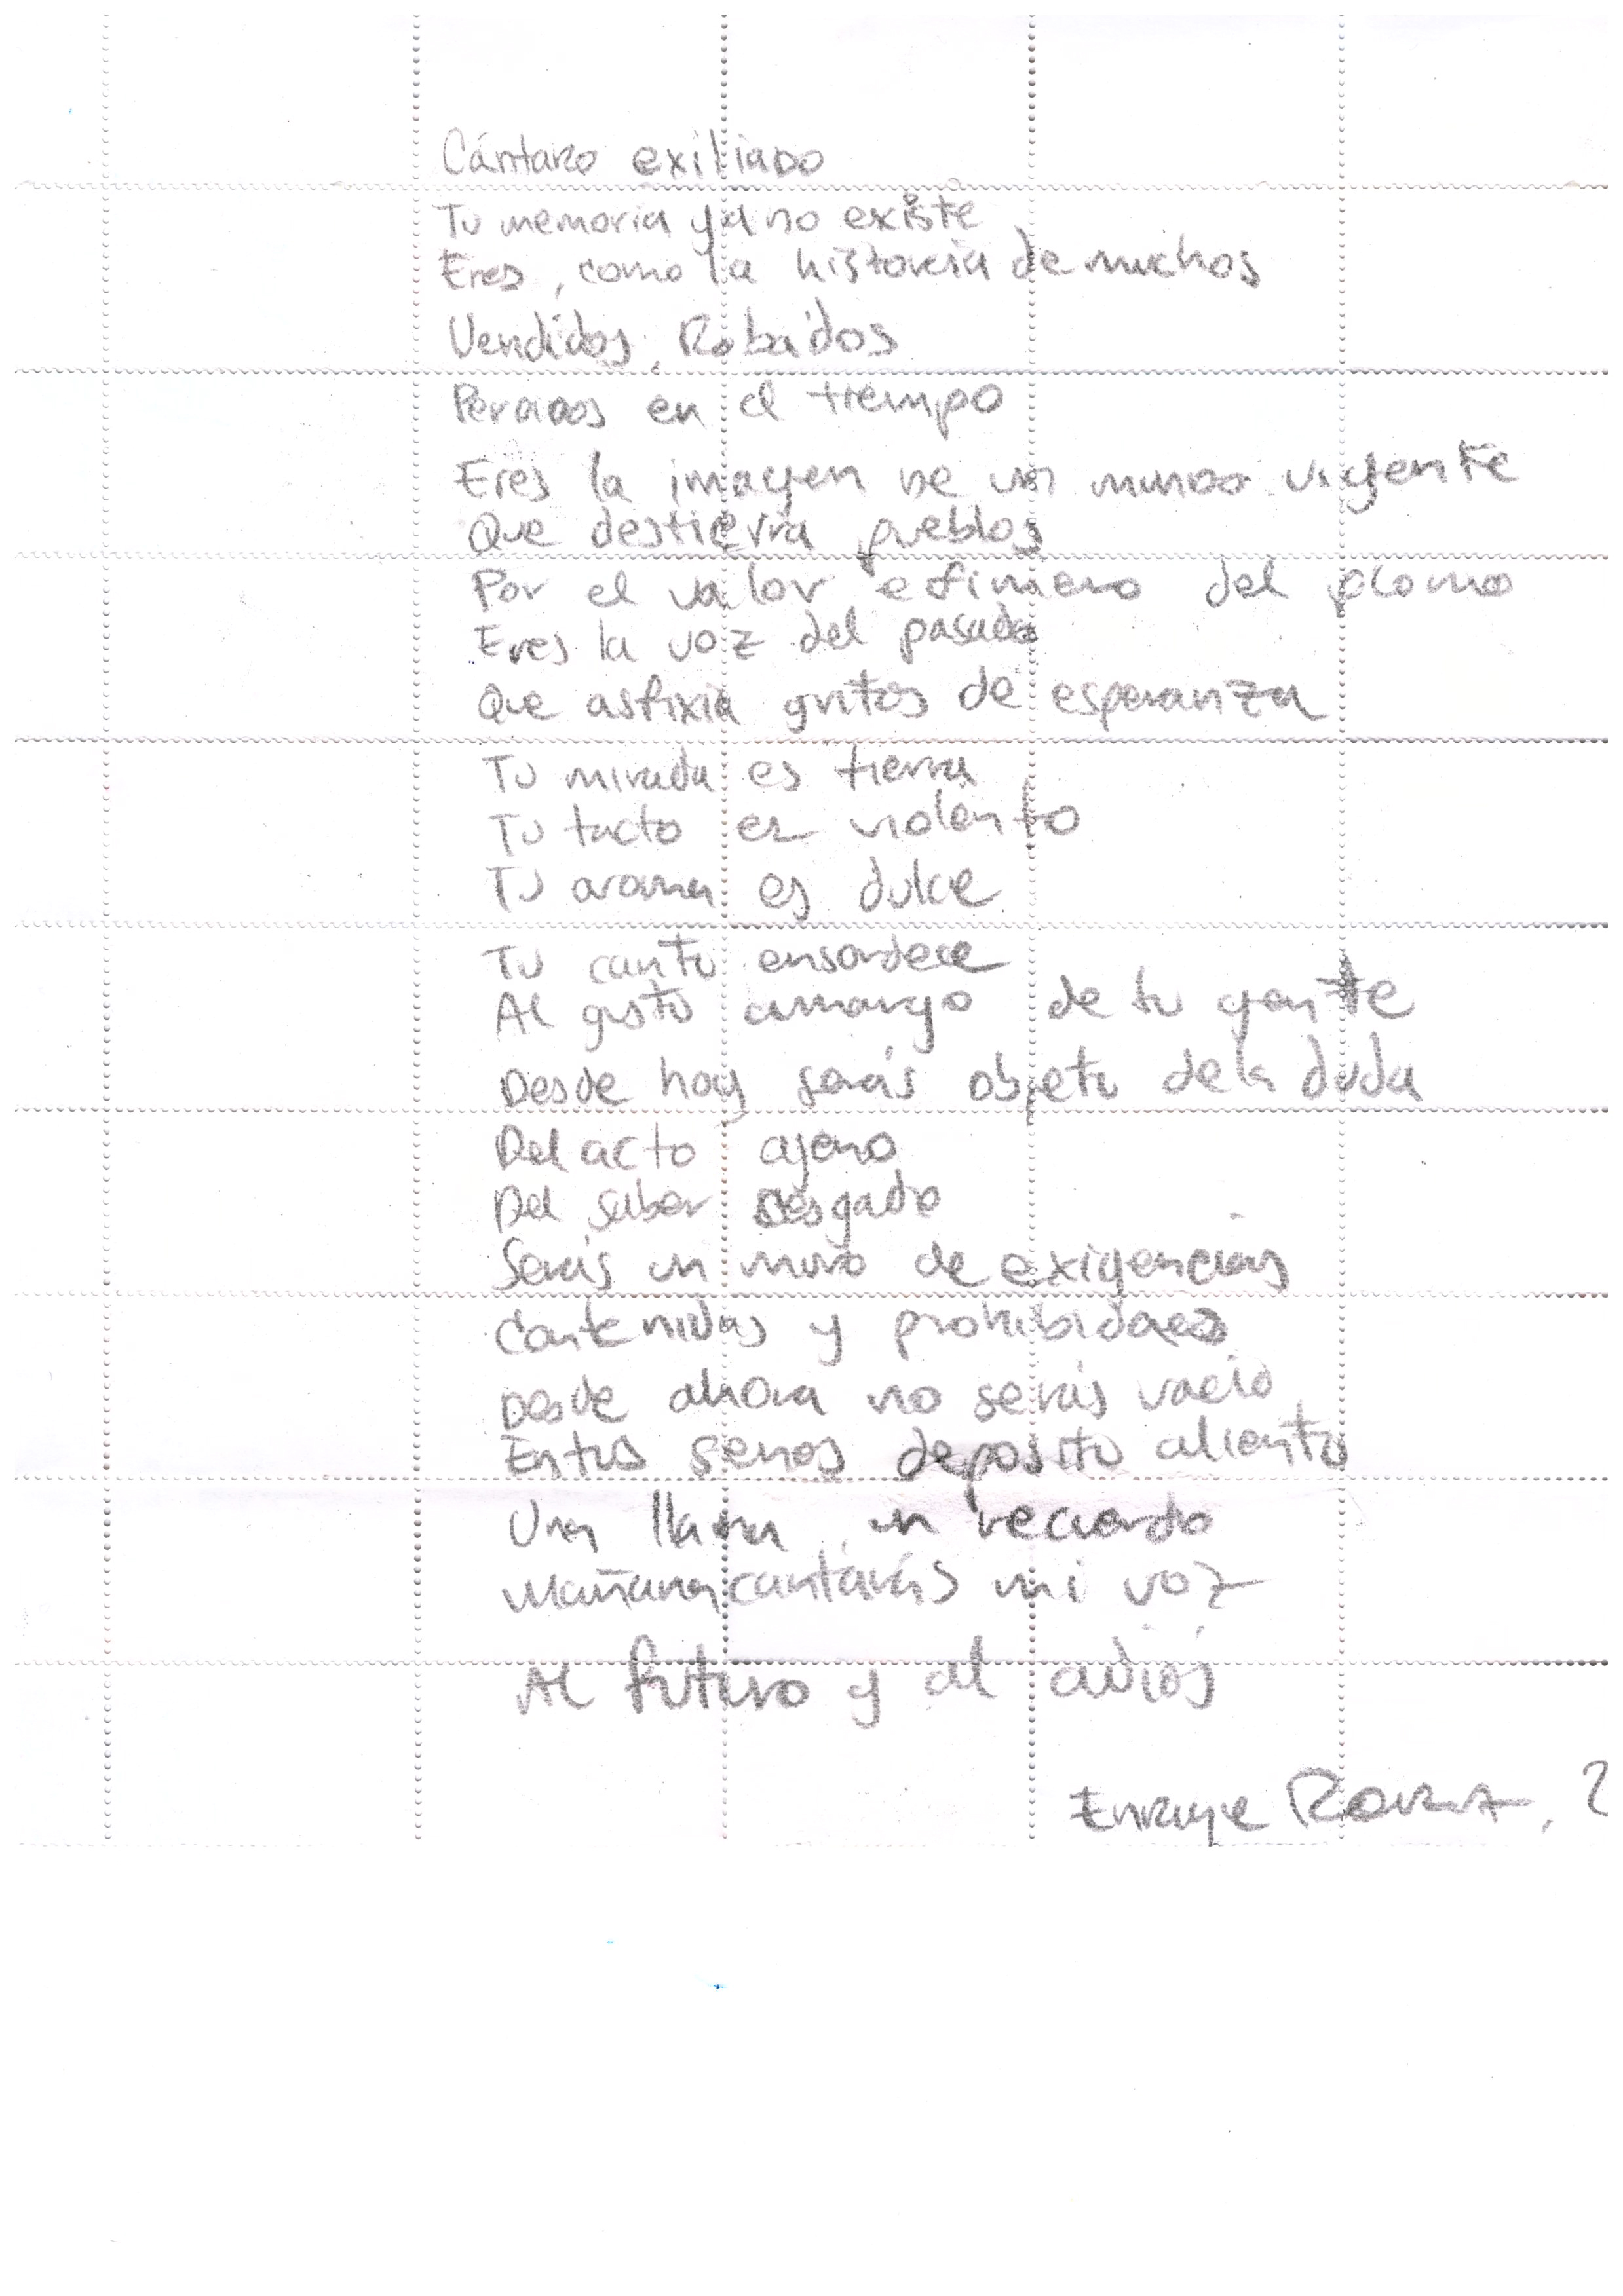 Cántaro exiliado
Tu memoria ya no existe
Eres, como la historia de muchos
Vendidos, Robados
Perdidos en el tiempo
Eres la imagen de un mundo vigente
Que destierra pueblos
Por el valor efimero del plomo
Eres la voz del pasado
Que asfixia gritos de esperanza
Tu mirada es tierra
Tu tacto es violento
Tu aroma es dulce
Tu canto ensordece
Al gusto amargo de tu gente
Desde hoy serás objeto de la duda
Del acto ajeno
Del saber sesgado
Serás un muro de exigencias
Contenidas y prohibidas
Desde ahora no serás vacío
En tus senos deposito aliento
Una llama, un recuerdo
Mañana cantarás mi voz
Al futuro y al adiós
Enrique